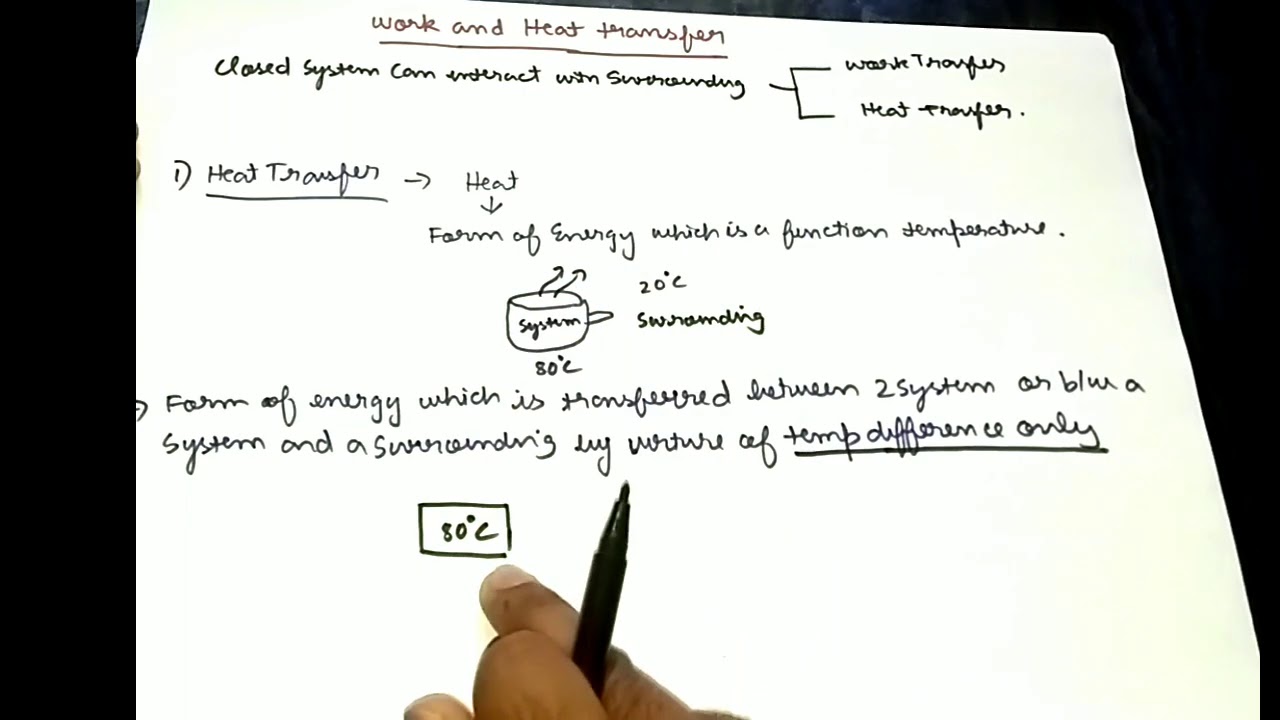 Work and Heat transfer
Closed System Can interact with Surrounding
Work Transfer
Heat Transfer.
1) Heat Transfer → Heat
↓
Form of Energy which is a function temperature.
20°C
System
Surrounding
80°C
Form of energy which is transferred between 2 System or b/w a
System and a Surrounding by virture of temp difference only
80°C